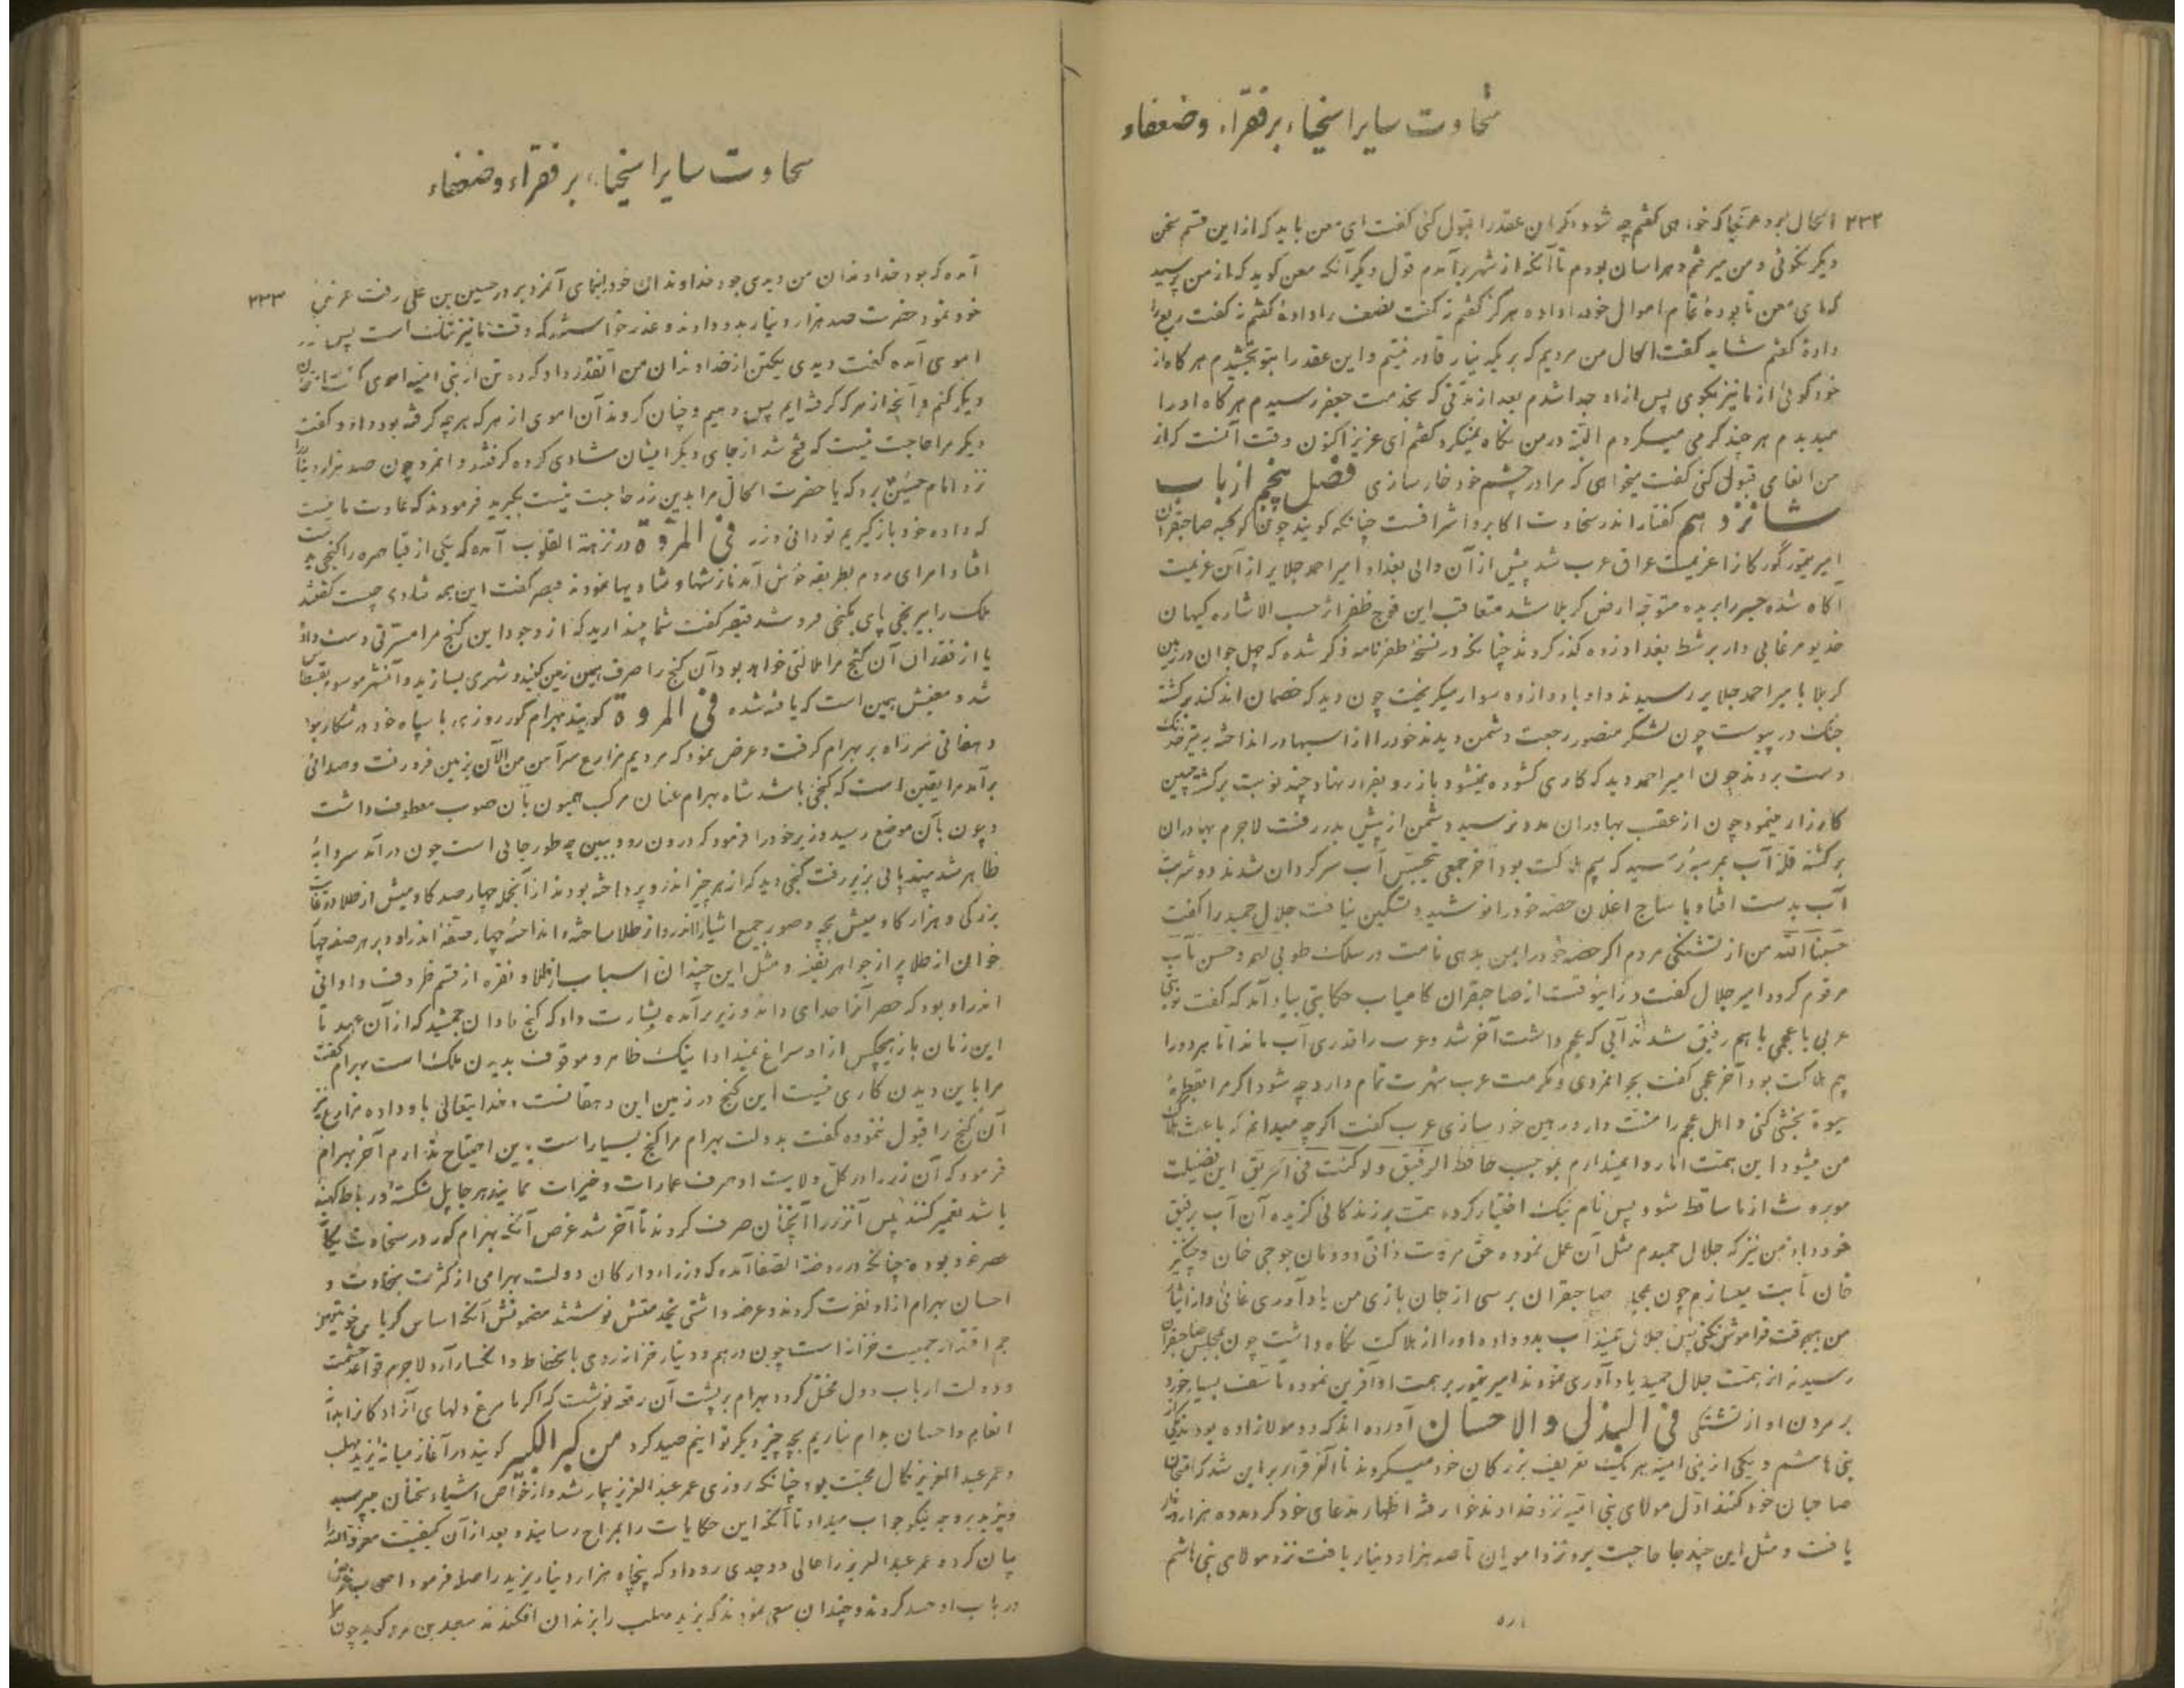 سخاوت سایر اسخیاء بر فقراء و ضعفاء
۲۳۲
الحال برو هر کجا که خواهی گفتم چه شود اگر این عقد را قبول کنی گفت ای معن باید که از این قسم سخن
دیگر نگوئی و من میرفتم و هراسان بودم تا آنکه از شهر برآمدم قول دیگر آنکه معن گوید که از من پرسید
که ای معن تا بودهٔ تمام اموال خود را داده هرگز گفتم نه گفت نصف را دادهٔ گفتم نه گفت ربع را
دادهٔ گفتم شاید گفت الحال من مردیم که بر یکدینار قادر نیستم و این عقد را بتو بخشیدم هر گاه از
خود گوئی از ما نیز بگوی پس از او جدا شدم بعد از مدتی که بخدمت جعفر رسیدم هر گاه او را
میدیدم هر چند گرمی میکردم البته در من نگاه نمیکرد گفتم ای عزیز اکنون وقت آنست که از
من انعامی قبول کنی گفت میخواهی که مرا در چشم خود خار سازی فصل پنجم از باب
شانزدهم گفتار اندر سخاوت اکابر و اشرافست چنانکه گویند چون کوکبه صاحبقران
امیر تیمور گورکان را عزیمت عراق عرب شد پیش از آن والی بغداد امیر احمد جلایر از آن عزیمت
آگاه شده جسر را بریده متوجه ارض کربلا شد متعاقب این فوج ظفر اثر حسب الاشاره کیهان
خدیو مرغابی وار بر شط بغداد زده گذر کردند چنانکه در نسخه ظفرنامه ذکر شده که چهل جوان در زمین
کربلا با میر احمد جلایر رسیدند و او با دوازده سوار میگریخت چون دید که خصمان اندکند برگشته
جنک در پیوست چون لشگر منصور رجعت دشمن دیدند خود را از اسبها در انداخته به تیر خدنک
دست بردند چون امیر احمد دید که کاری گشوده نمیشود باز رو بفرار نهاد چند نوبت برگشته چنین
کارزار مینمود چون از عقب بهادران مدد نرسید دشمن از پیش بدر رفت لاجرم بهادران
برگشته قلة آب بمرتبهٔ رسید که بیم هلاکت بود آخر جمعی بتجسس آب سرگردان شدند دو شربت
آب بدست افتاد با ساج اغلان حصه خود را نوشید و تسکین نیافت جلال حمید را گفت
حسبنا الله من از تشنگی مردم اگر حصه خود را بمن بدهی نامت در سلک طوبی لهم و حسن مآب
مرقوم گردد امیر جلال گفت در اینوقت از صاحبقران کامیاب حکایتی بیاد آمد که گفت نوبتی
عربی با عجمی باهم رفیق شدند آبی که عجم داشت آخر شد و عرب را قدری آب ماند اما هر دو را
بیم هلاکت بود آخر عجمی گفت بجوانمردی و مکرمت عرب شهرت تمام دارد چه شود اگر مرا بقطرهٔ
میوهٔ بخشی کنی و اهل عجم را منت دار و رهین خود سازی عرب گفت اگرچه میدانم که باعث هلاک
من میشود این همت اما روا نمیدارم بموجب حافظ الرفیق و لو کنت فی الحریق این فضیلت
موروث از ما ساقط شود پس نام نیک اختیار کرده همت بر زندگانی گزیده آن آب برفیق
خود داد من نیز که جلال حمیدم مثل آن عمل نموده حق مروت ذاتی دودمان جوجی خان و چنگیز
خان ثابت میسازم چون بمجلس صاحبقران برسی از جان بازی من یادآوری غائی و از ایثار
من هیچوقت فراموش نکنی پس جلال حمید آب بدو داده او را از هلاکت نگاه داشت چون بمجلس صاحبقران
رسیدند از همت جلال حمید یادآوری نمودند امیر تیمور بر همت او آفرین نموده تأسف بسیار خورد
بر مردن او از تشنگی فی البذل والاحسان آورده اند که دو مولازاده بود یکی از
بنی هاشم و یکی از بنی امیه هر یک تعریف بزرگان خود میکردند تا آخر قرار بر این شد که امتحان
صاحبان خود کنند اول مولای بنی امیه نزد خداوند خود رفته اظهار مدعای خود کرد ده هزار دینار
یافت و مثل این چند جا حاجت برد نزد امویان تا صد هزار دینار یافت نزد مولای بنی هاشم
سخاوت سایر اسخیاء بر فقراء و ضعفاء
۲۳۳
آمده که بود خداوندان من دیدی جود خداوندان خود بنمای آنمرد بر در حسین بن علی رفت عرض
خود نمود حضرت صد هزار دینار بدو دادند و عذر خواستند که وقت ما نیز تنگ است پس نزد
اموی آمده گفت دیدی یکتن از خداوندان من آنقدر داد که ده تن از بنی امیه اموی گفت امتحان
دیگر کنم و آنچه از هر که گرفته ایم پس دهیم و چنان کردند آن اموی از هر که هر چه گرفته بود داد و گفت
دیگر مرا حاجت نیست که فتح شد از جای دیگر ایشان شادی کرده گرفتند و آنمرد چون صد هزار دینار را
نزد امام حسین برد که یا حضرت الحال مرا بدین زر حاجت نیست بگیرید فرمودند که عادت ما نیست
که داده خود باز گیریم تو دانی و زر فی المروة در نزهة القلوب آمده که یکی از قیاصره را گنجی بدست
افتاد امرای روم بطریقه خوش آمد نازشها و شادیها نمودند قیصر گفت این همه شادی چیست گفتند
ملک را بیرنجی پای بگنجی فرو شد قیصر گفت شما پندارید که از وجود این گنج مرا مسرتی دست داد
یا از فقدان آن گنج مرا ملالتی خواهد بود آن گنج را صرف همین زمین کنید و شهری بسازید و آنشهر موسوم بقسطا
شد و معنیش همین است که یافته شده فی المروة گویند بهرام گور روزی با سپاه خود در شکار بود
دهقانی سر راه بر بهرام گرفت و عرض نمود که مردیم مزارع سرآمن من الآن بزمین فرو رفت و صدائی
برآمد مرا یقین است که گنجی باشد شاه بهرام عنان مرکب همیون بآن صوب معطوف داشت
و چون بآن موضع رسید وزیر خود را فرمود که درون رو و ببین چه طور جائی است چون در آمد سردابهٔ
ظاهر شد چند پائی بزیر رفت گنجی دید که از هر چیز اندرو پرداخته بودند از آنجمله چهار صد گاومیش از طلا در غایت
بزرگی و هزار گاومیش بچه و صور جمیع اشیاء اندرو از طلا ساخته و انداخته چهار صفه اندر او و بر هر صفه چهار
خوان از طلا پر از جواهر نفیس و مثل این چندان اسباب از طلا و نقره از قسم ظروف و اوانی
اندراو بود که حصر آنرا خدای داند وزیر برآمده بشارت داد که گنج مادان جمشید که از آن عهد تا
این زمان باز هیچکس از او سراغ نمیداد اینک ظاهر و موقوف بدیدن ملک است بهرام گفت
مرا باین دیدن کاری نیست این گنج در زمین این دهقانست و خدایتعالی باو داده مزارع نیز
آن گنج را قبول ننموده گفت بدولت بهرام مرا گنج بسیار است بدین احتیاج ندارم آخر بهرام
فرمود که آن زر را در کل ولایت او صرف عمارات و خیرات نمایند هر جا پل شکسته و رباط کهنه
باشد تعمیر کنند پس آنزر را آنچنان صرف کردند تا آخر شد غرض آنکه بهرام گور در سخاوت یگانهٔ
عصر خود بوده چنانکه در روضة الصفا آمده که وزراء و ارکان دولت بهرامی از کثرت سخاوت و
احسان بهرام از او نفرت کردند و عرضه داشتی بخدمتش نوشتند مضمونش آنکه اساس کریاس خدیو تمیز
جم اقتدار جمعیت خزانه است چون درهم و دینار خزانه روی بانحطاط و انکسار آرد لاجرم قواعد حشمت
و دولت ارباب دول مختل گردد بهرام بر پشت آن رقعه نوشت که اگر ما مرغ دلهای آزادگان را بدانهٔ
انعام و احسان بدام نیاریم بچه چیز دیگر توانیم صید کرد من کبر الکبیر گویند در آغاز میانه یزید مهلب
و عمر عبد العزیز کمال محبت بود چنانکه روزی عمر عبد العزیز بیمار شد و از خواص اشیاء سخنان میپرسید
و یزید بروجه نیکو جواب میداد تا آنکه این حکایات را بمراح رسانیده بعد از آن کیفیت معرفة الله را
بیان کرد و عمر عبد العزیز را حالی و وجدی رو داد که پنجاه هزار دینار یزید را صله فرمود اصحاب غرض
در باب او حسد کردند و چندان سعی نمودند که یزید مهلب را بزندان افکندند سعید بن عمرو گوید چون